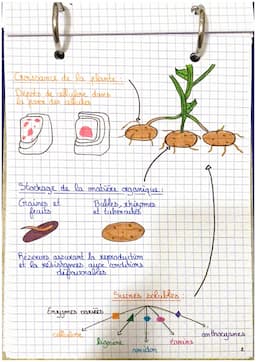 Croissance de la plante :
Dépôts de cellulose dans
la paroi des cellules
Stockage de la matière organique :
Graines et
fruits
Bulbes, rhizomes
et tubercules
Réserves assurant la reproduction
et la résistance aux conditions
défavorables
Sucres solubles :
Enzymes variées
cellulose
lignine
amidon
tanins
anthocyanes